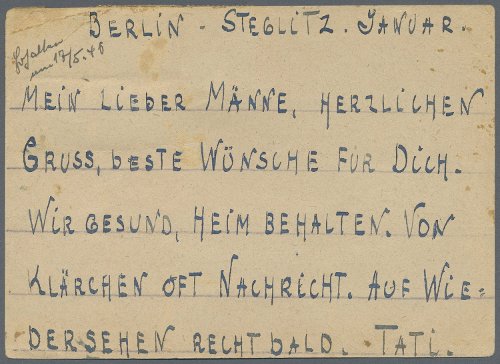 BERLIN - STEGLITZ. JANUAR.
Erhalten
am 17/5.46
MEIN LIEBER MÄNNE, HERZLICHEN
GRUSS, BESTE WÜNSCHE FÜR DICH.
WIR GESUND, HEIM BEHALTEN. VON
KLÄRCHEN OFT NACHRICHT. AUF WIE-
DERSEHEN RECHT BALD. TATI.